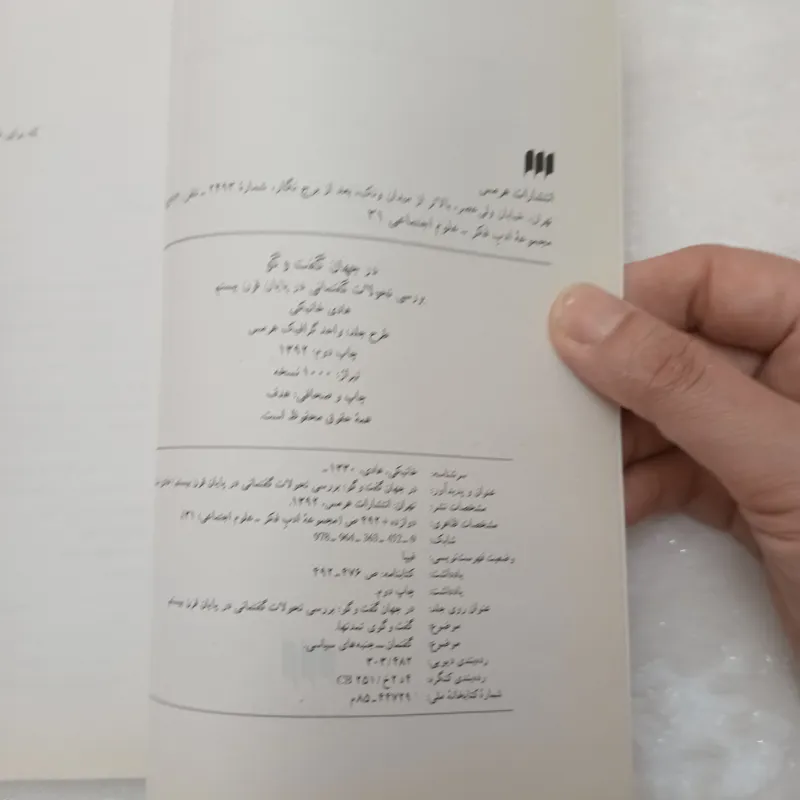 که برای
انتشارات هرمس
تهران، خیابان ولی عصر، بالاتر از میدان ونک، بعد از برج نگار، شمارهٔ ۲۴۹۳ ـ تلفن
مجموعهٔ ادب فکر ـ علوم اجتماعی ۳۱
در جهان گفت و گو
بررسی تحولات گفتمانی در پایان قرن بیستم
هادی خانیکی
طرح جلد: واحد گرافیک هرمس
چاپ دوم: ۱۳۹۲
تیراژ: ۱۰۰۰ نسخه
چاپ و صحافی: هدف
همهٔ حقوق محفوظ است.
سرشناسه: خانیکی، هادی، ۱۳۳۰ـ
عنوان و پدیدآور: در جهان گفت و گو: بررسی تحولات گفتمانی در پایان قرن بیستم
مشخصات نشر: تهران: انتشارات هرمس، ۱۳۹۲.
مشخصات ظاهری: دوازده + ۴۹۲ ص (مجموعهٔ ادب فکر ـ علوم اجتماعی؛ ۳۱)
شابک: 978-964-363-402-0
وضعیت فهرست‌نویسی: فیپا
یادداشت: کتابنامه: ص ۴۷۶ـ۴۹۲
یادداشت: چاپ دوم.
عنوان روی جلد: در جهان گفت و گو: بررسی تحولات گفتمانی در پایان قرن بیستم
موضوع: گفت و گوی تمدنها.
موضوع: گفتمان ـ جنبه‌های سیاسی.
رده‌بندی دیویی: ۳۰۳/۴۸۲
رده‌بندی کنگره: CB ۲۵۱/خ۲د۴
شمارهٔ کتابخانهٔ ملی: ۴۴۷۲۹ـ۸۵م